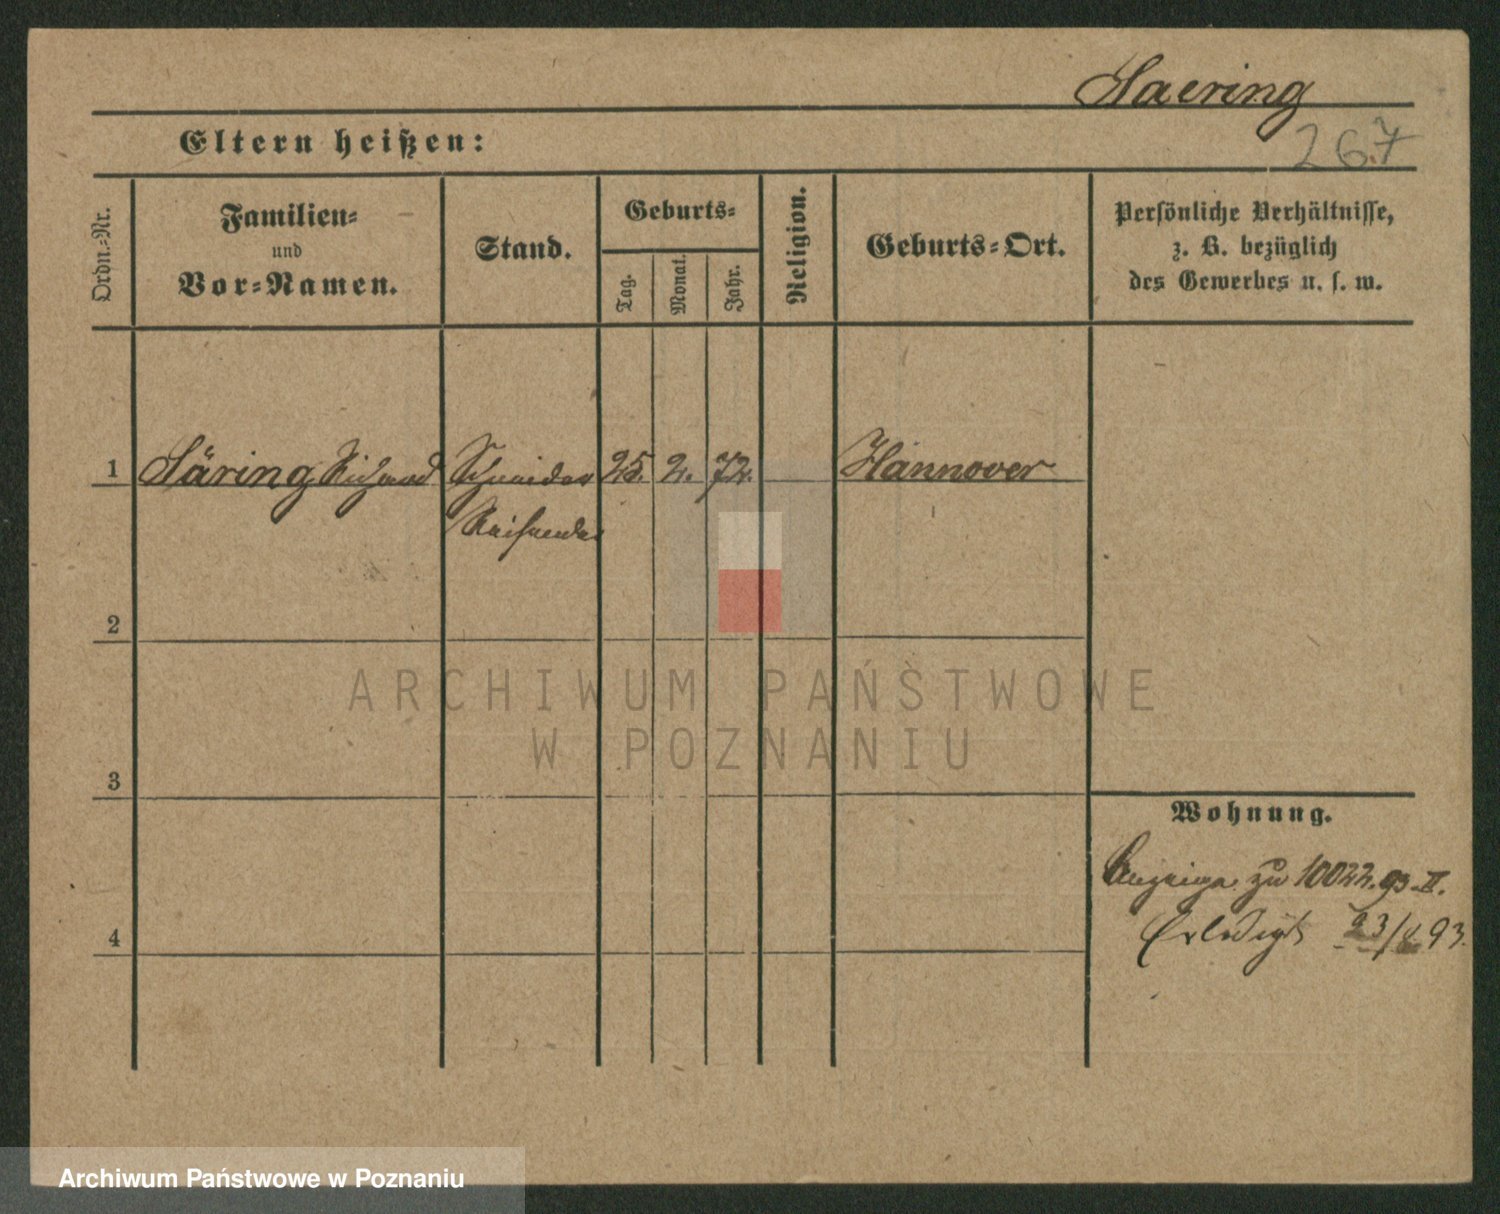 Saering
267
Eltern heißen:
Ordn.-Nr.
Familien-
und
Vor-Namen.
Stand.
Geburts-
Tag.
Monat.
Jahr.
Religion.
Geburts-Ort.
Persönliche Verhältnisse,
z. B. bezüglich
des Gewerbes u. s. w.
1 Säring Richard Schneider 25. 2. 72. Hannover
Reisender
2
ARCHIWUM PAŃSTWOWE
W POZNANIU
3
Wohnung.
Anzeige zu 10022.93.II.
4
Erledigt 93.
Archiwum Państwowe w Poznaniu